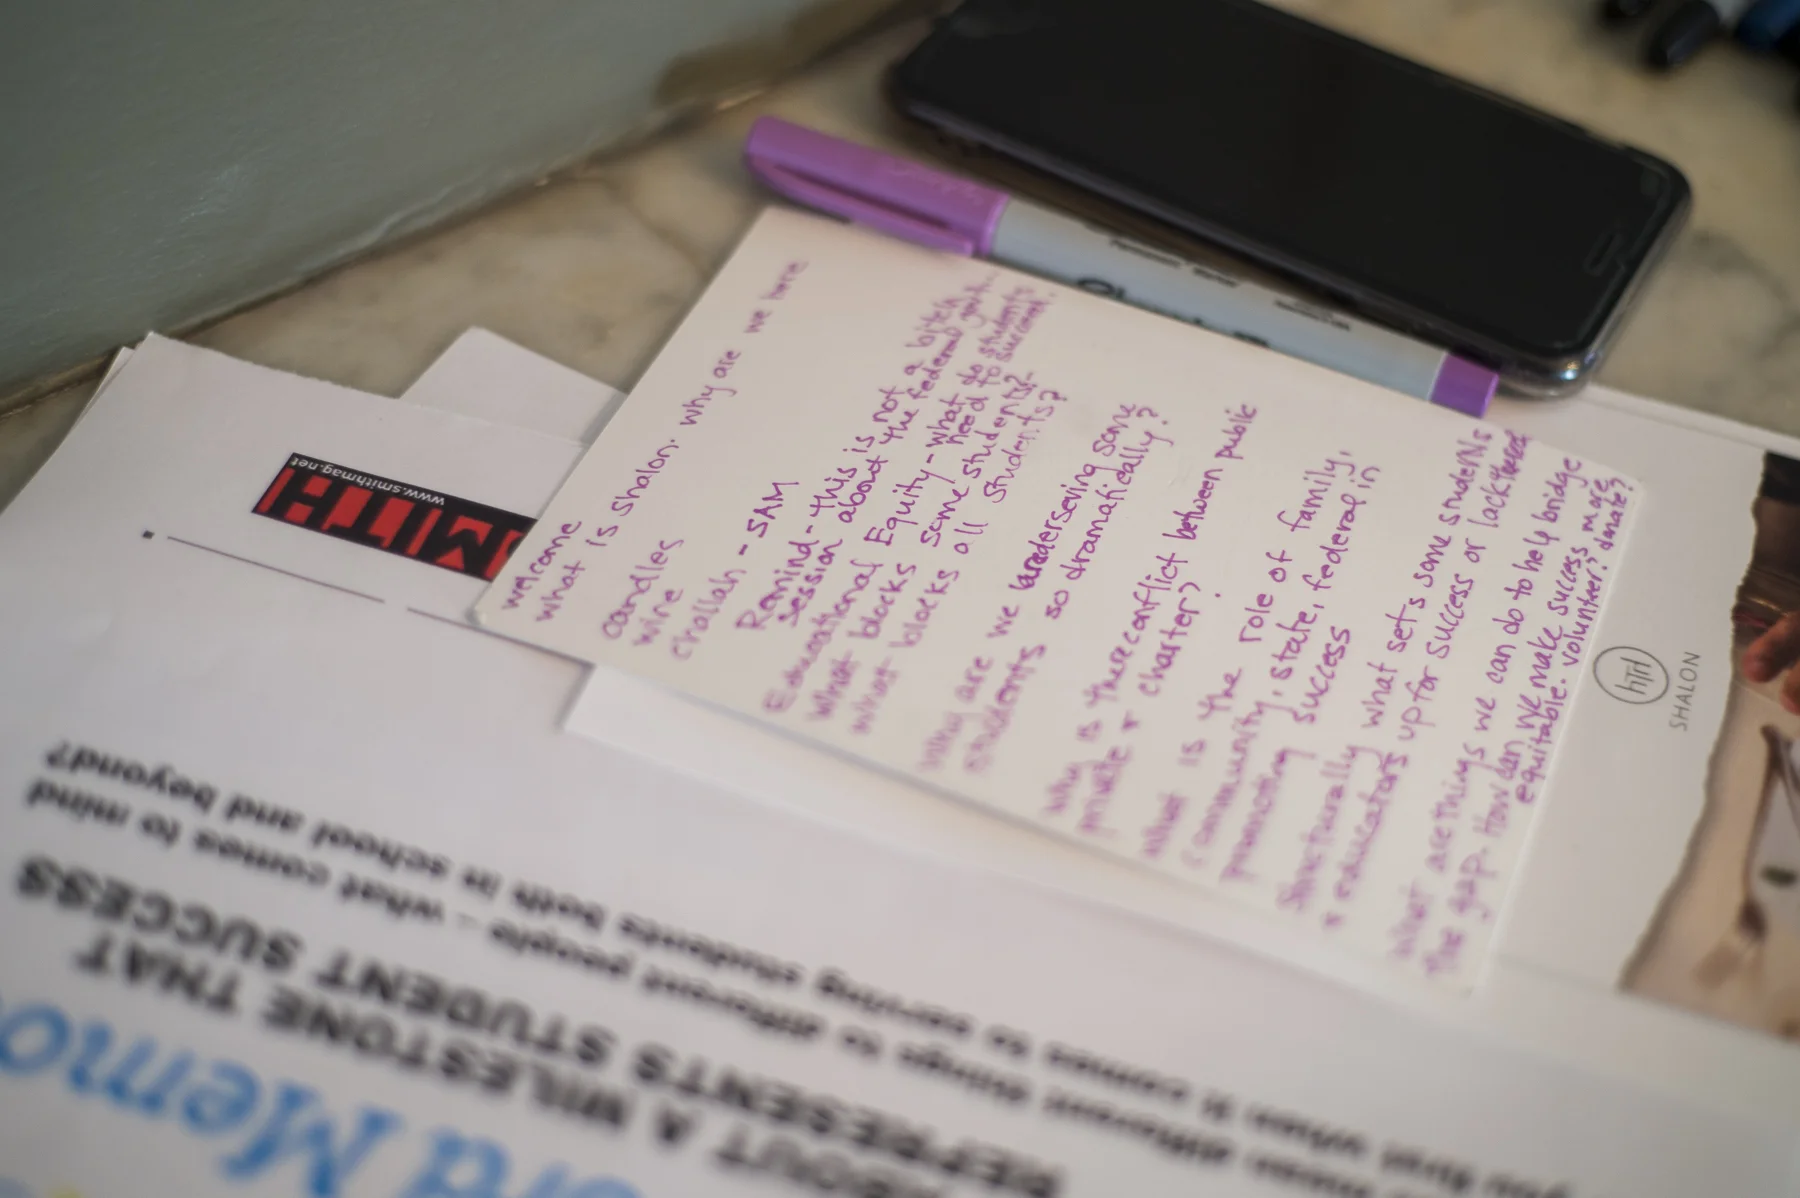 welcome
what is shalon. why are we here
candles
wine
challah - SAM
Remind - this is not a bitch
session about the federal govt.
Educational Equity - what do students
need to succeed.
what blocks some students?
what blocks all students?
Why are we underserving some
students so dramatically?
Why is there conflict between public
private + charter?
What is the role of family,
community, state, federal in
promoting success
Structurally what sets some students
+ educators up for success or lack thereof
What are things we can do to help bridge
the gap. How can we make success more
equitable. volunteer? donate?
SHALON
www.smithmag.net
MITH
Memo
ABOUT A MILESTONE THAT
REPRESENTS STUDENT SUCCESS
mean different things to different people - what comes to mind
you first when it comes to serving students both in school and beyond?